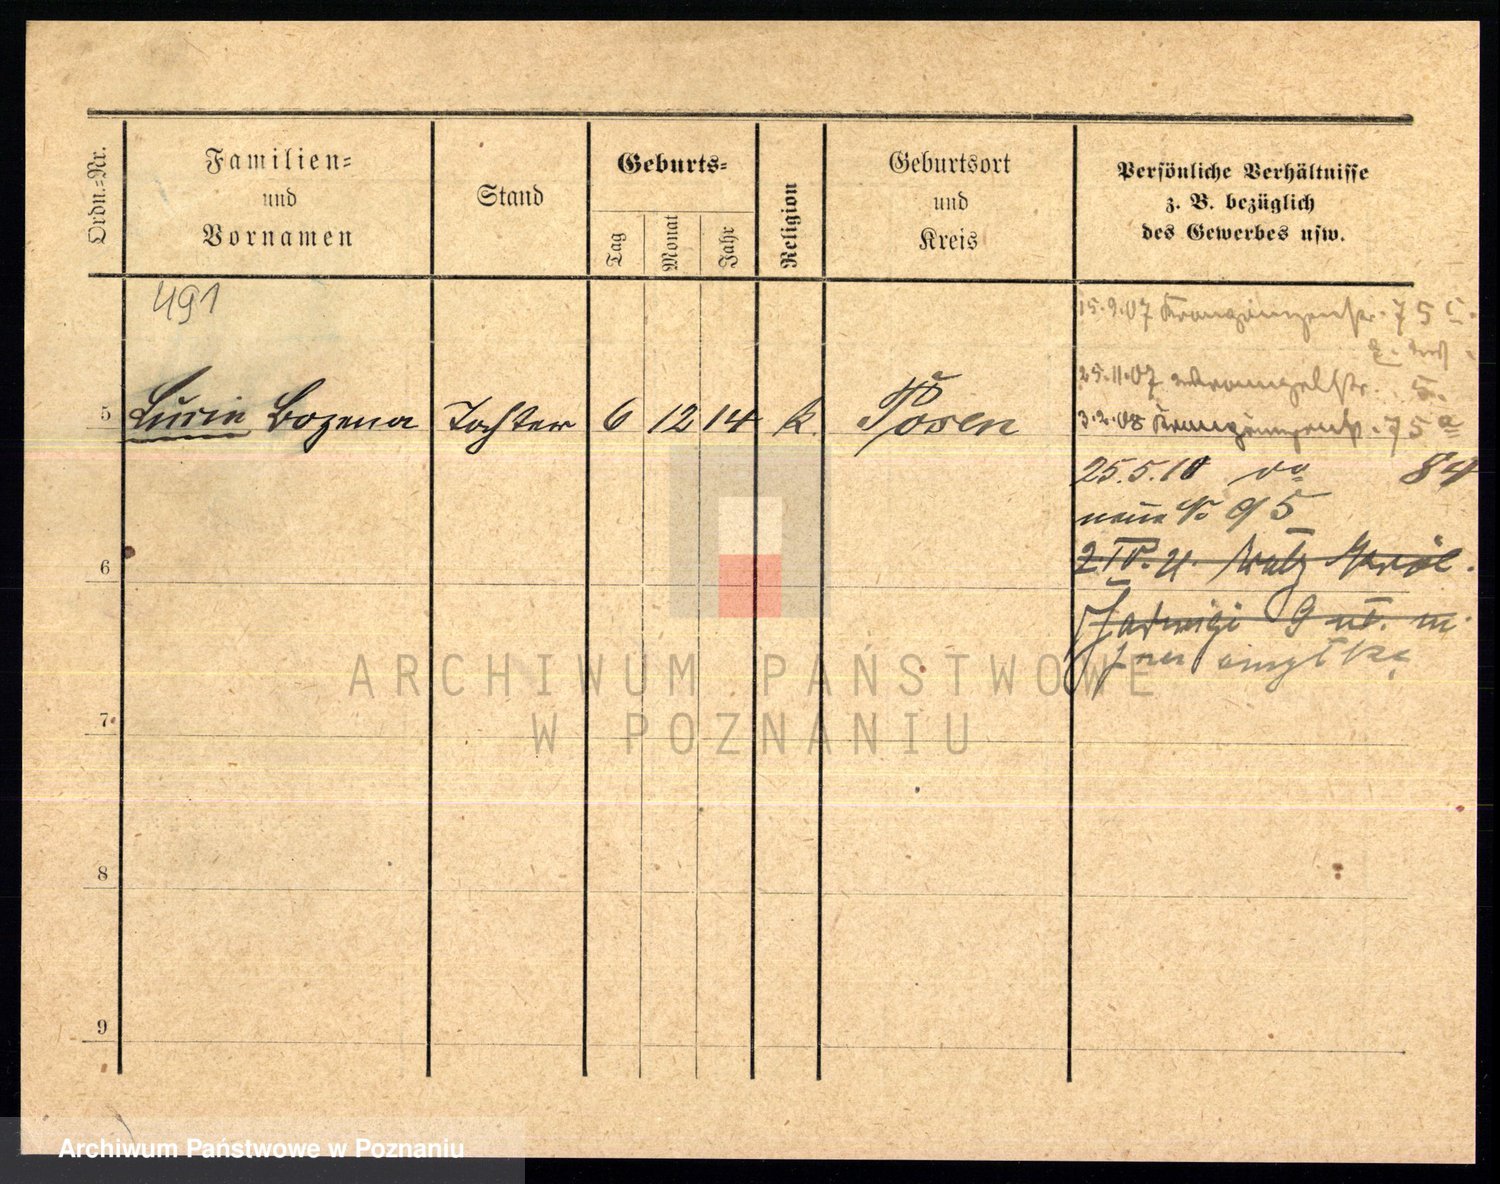 Ordn.=Nr.
Familien=
und
Vornamen
Stand
Geburts=
Tag
Monat
Jahr
Religion
Geburtsort
und
Kreis
Persönliche Verhältnisse
z. B. bezüglich
des Gewerbes usw.
491
15.9.07 75 c.
25.11.07 5.
5 Lucie Bozena Tochter 6 12 14 k. Posen
3.2.08 75 a
25.5.10 do 84
neue No 95
6
2 IV. 21.
Jadwigi 9 m.
7
ARCHIWUM PAŃSTWOWE
W POZNANIU
8
9
Archiwum Państwowe w Poznaniu